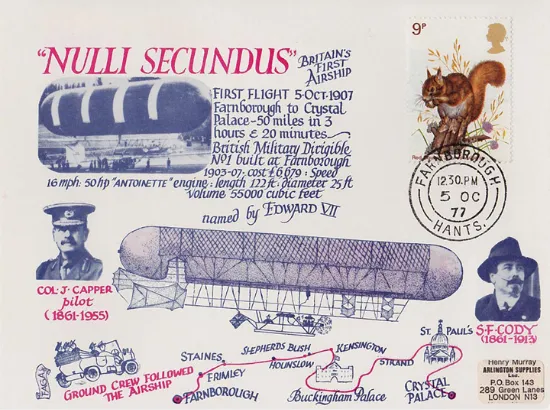 "NULLI SECUNDUS"
BRITAIN'S
FIRST
AIRSHIP
FIRST FLIGHT 5·OCT·1907
Farnborough to Crystal
Palace-50 miles in 3
hours & 20 minutes~
British Military Dirigible
Nº1 built at Farnborough
1903-07; cost £6,679 : Speed
16 mph: 50 hp "ANTOINETTE" engine: length 122 ft: diameter 25 ft
volume 55000 cubic feet
named by EDWARD VII
9p
FARNBOROUGH
12.30.PM
5 OC
77
HANTS.
COL·J·CAPPER
pilot
(1861-1955)
S·F·CODY
(1861-1913)
GROUND CREW FOLLOWED
THE AIRSHIP
FARNBOROUGH
FRIMLEY
STAINES
SHEPHERDS BUSH
HOUNSLOW
KENSINGTON
Buckingham Palace
STRAND
ST. PAUL'S
CRYSTAL
PALACE
Henry Murray
ARLINGTON SUPPLIES
P.O. BOX 143
289 Green Lanes
LONDON N13